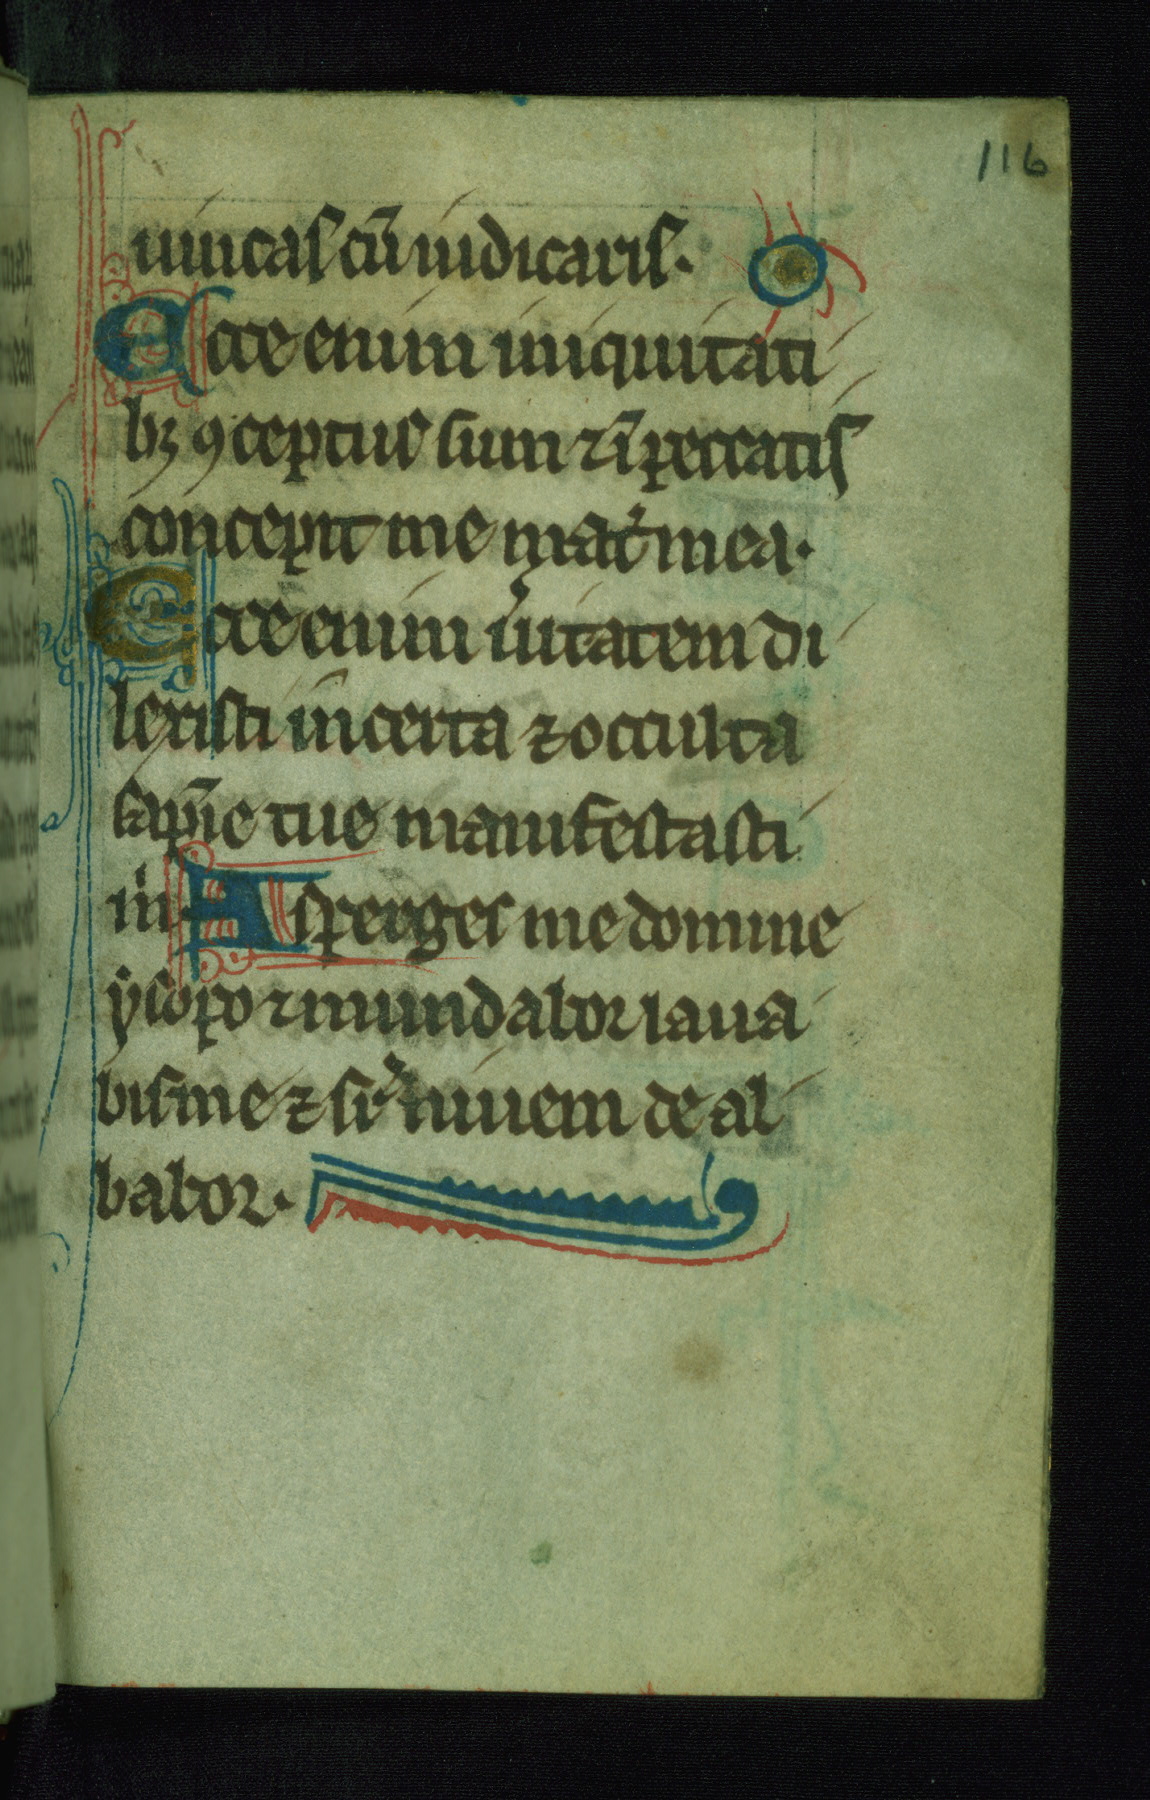 116
uincas cū iudicaris.
Ecce enim iniquitati
bꝫ ꝯceptus sum ⁊ ī peccatis
concepit me mat̉ mea.
Ecce enim ũitatem di
lexisti incerta ⁊ occulta
sapīe tue manifestasti
m̍ Asperges me domine
ẏsopo ⁊ mundabor laua
bis me ⁊ sr̉ niuem de al
babor.